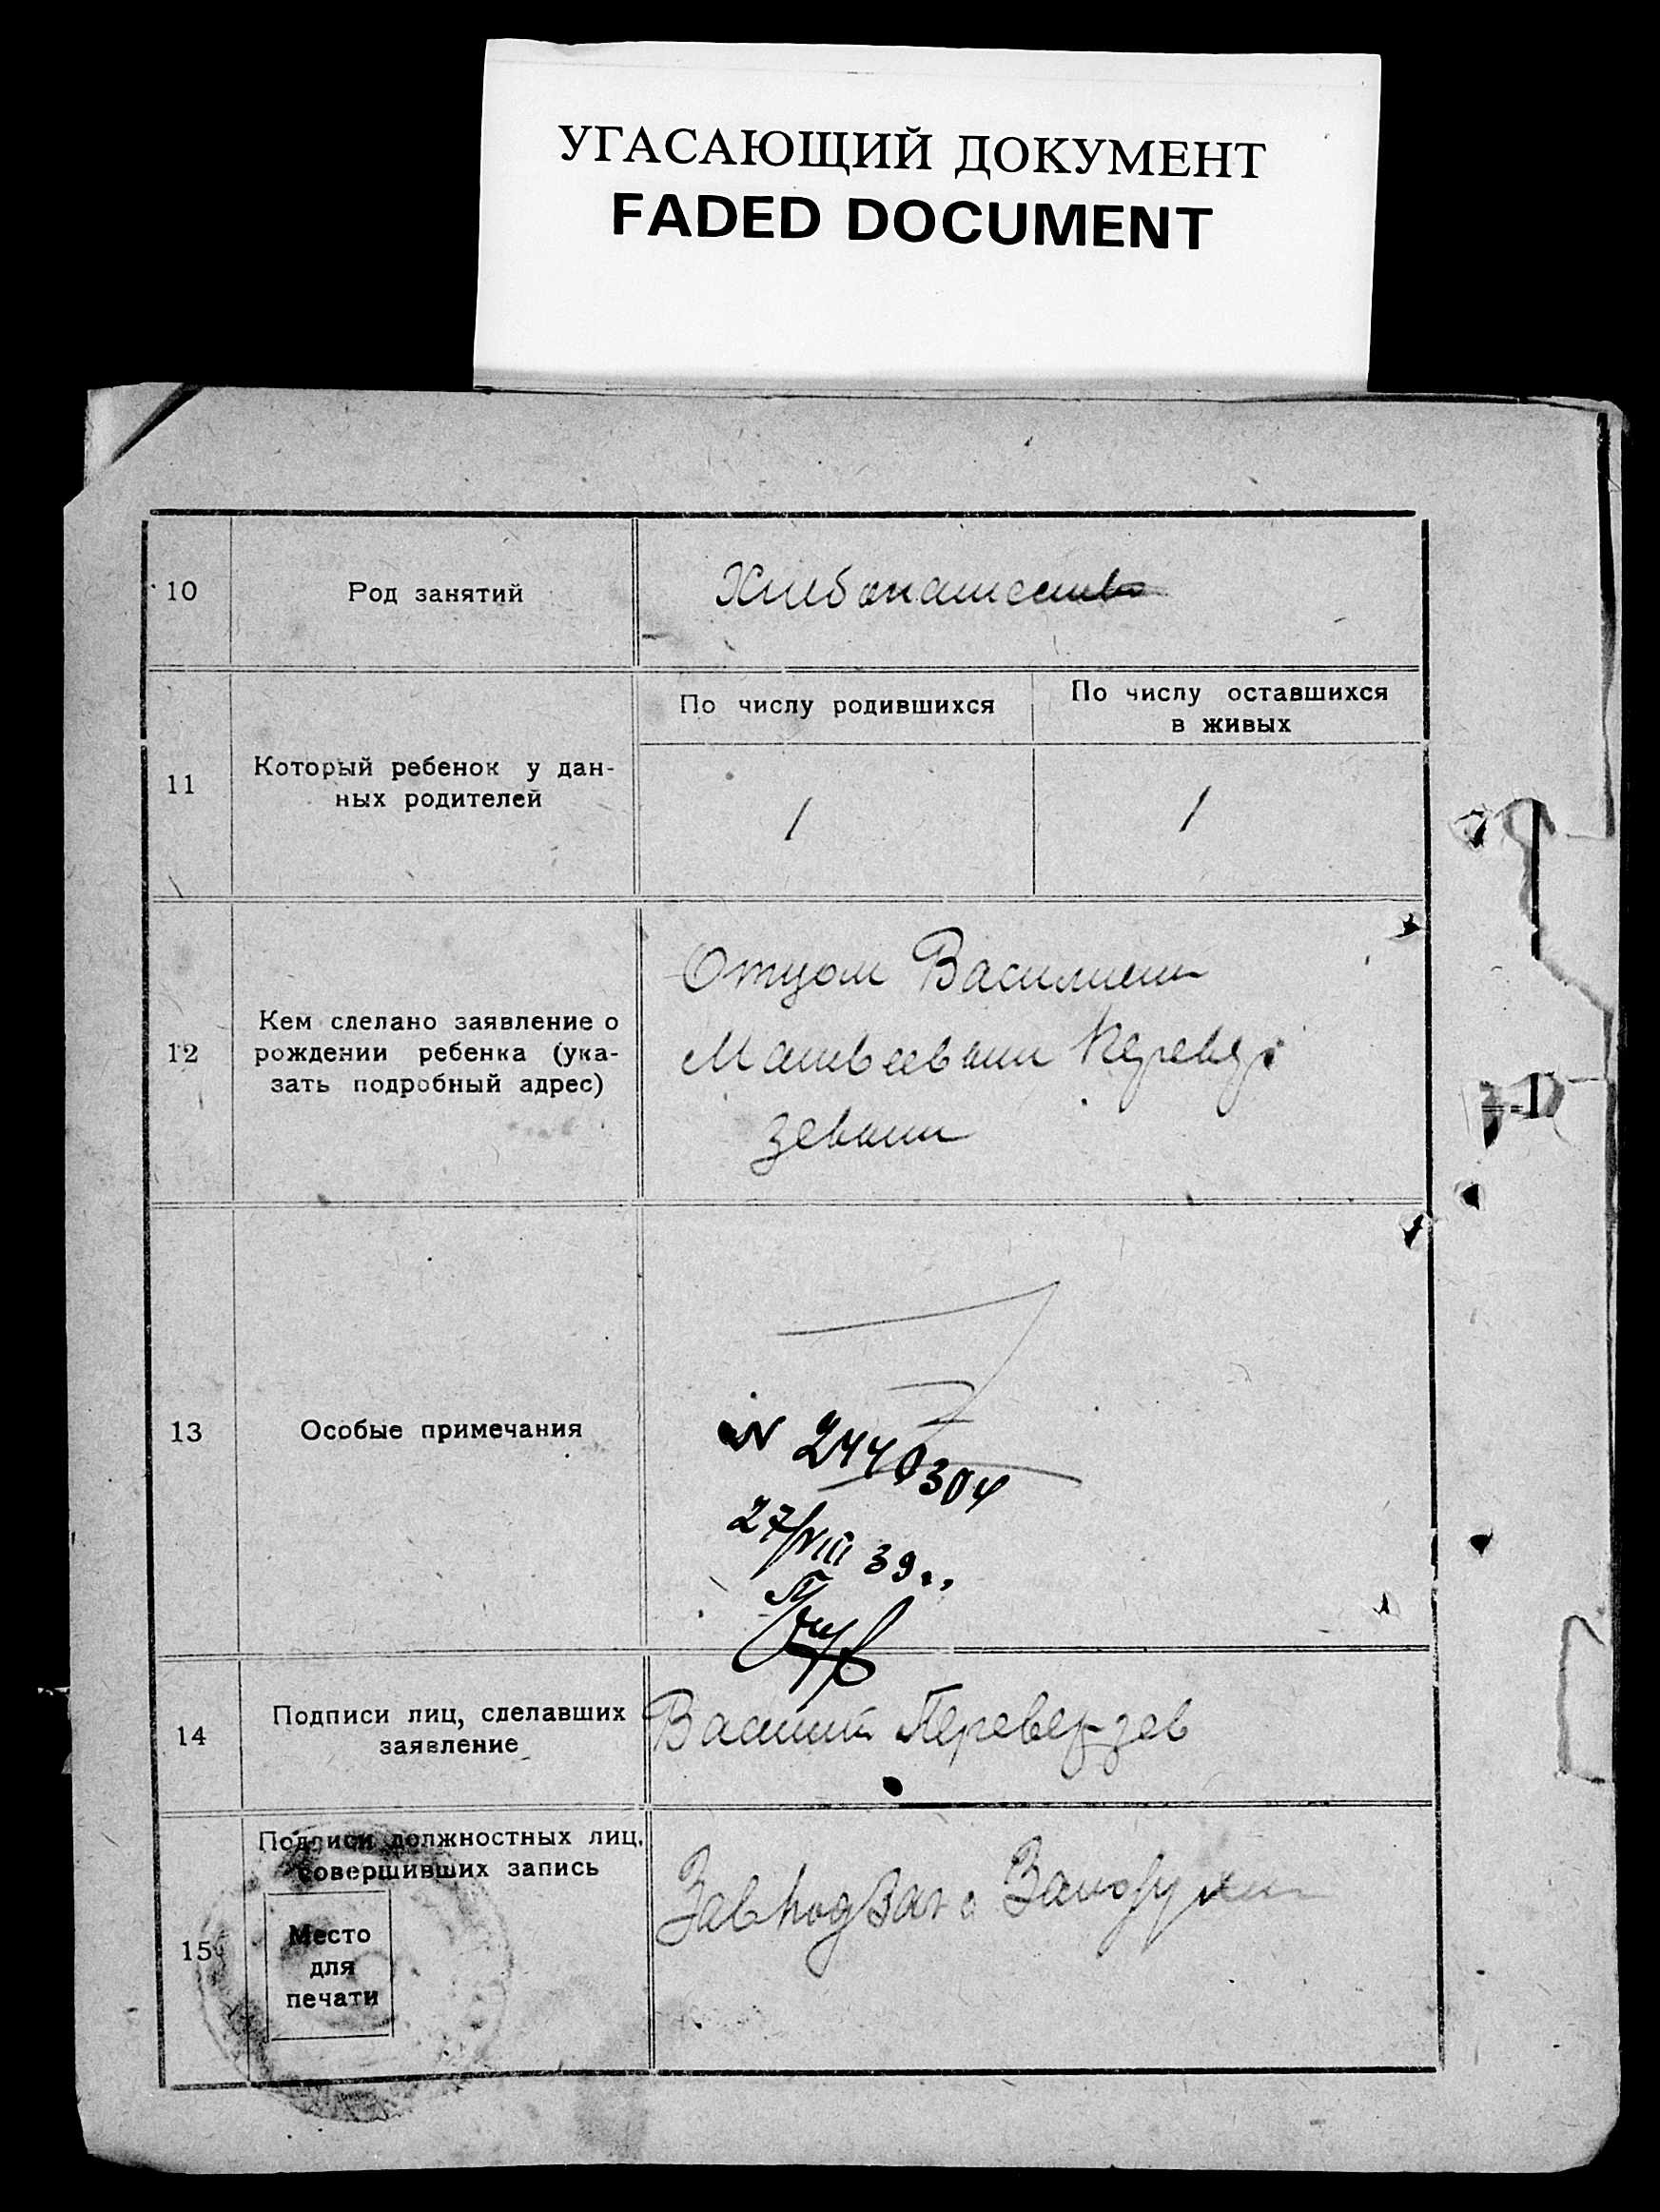 УГАСАЮЩИЙ ДОКУМЕНТ
FADED DOCUMENT
10
Род занятий
Хлебопашество
11
Который ребенок у дан-
ных родителей
По числу родившихся
По числу оставшихся
в живых
1
1
12
Кем сделано заявление о
рождении ребенка (ука-
зать подробный адрес)
Отцом Василием
Матвеевым Перевер
зевым
13
Особые примечания
N 2440304
27/VIII 39 г.
14
Подписи лиц, сделавших
заявление
Василий Переверзев
15
Подписи должностных лиц,
совершивших запись
Место
для
печати